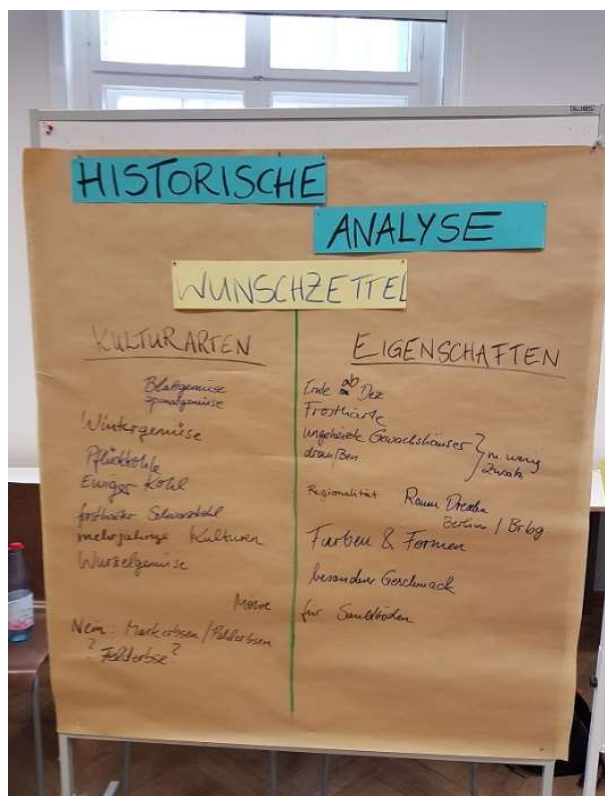 HISTORISCHE
ANALYSE
WUNSCHZETTEL
KULTURARTEN
Blattgemüse
Spinatgemüse
Wintergemüse
Pflückkohle
Ewiger Kohl
frostharter Schwarzkohl
mehrjährige Kulturen
Wurzelgemüse
Möhre
Nein: Markerbsen / Palerbsen
? Felderbse ?
EIGENSCHAFTEN
Ernte ab Dez
Frosthärte
ungeheizte Gewächshäuser
draußen
m. wenig
Zwatz
Regionalität Raum Dresden
Berlin / Brbg
Farben & Formen
besonderer Geschmack
für Sandböden